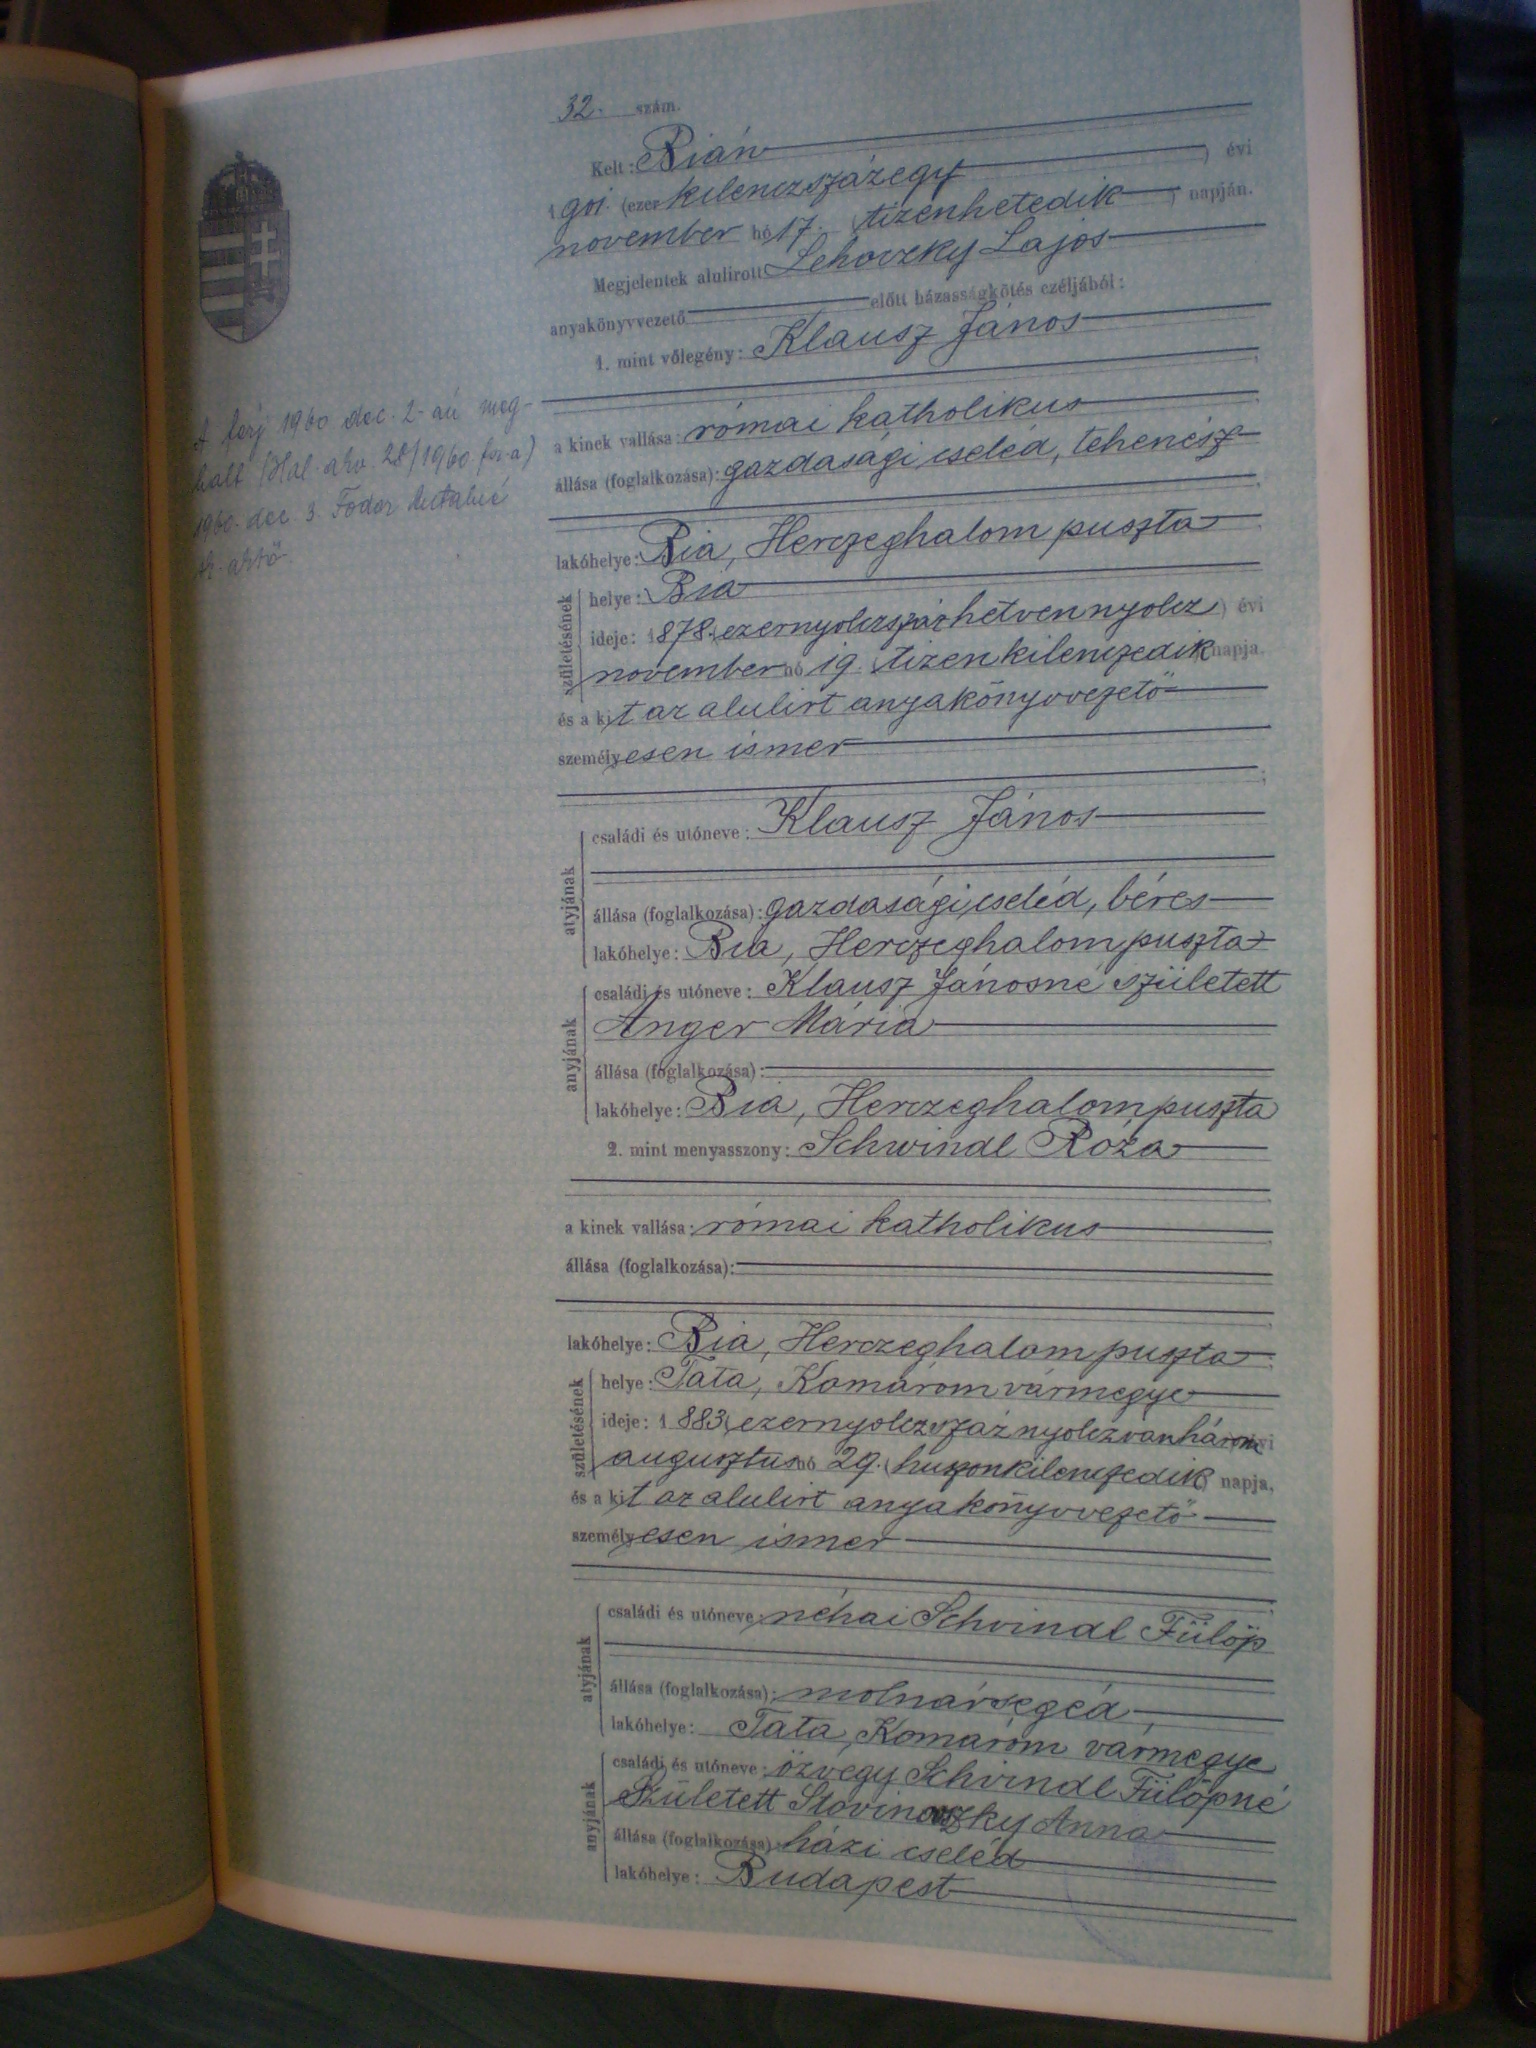 32. szám.
Kelt: Bián
1901. (ezer kilenczszázegy) évi
november hó 17. (tizenhetedik) napján.
Megjelentek alulirott Lehoczky Lajos
anyakönyvvezető előtt házasságkötés czéljából:
1. mint vőlegény: Klausz János
a kinek vallása: római katholikus
állása (foglalkozása): gazdasági cseléd, tehenész
lakóhelye: Bia, Herczeghalom puszta
születésének
helye: Bia
ideje: 1878. (ezernyolczszázhetvennyolcz) évi
november hó 19. (tizenkilenczedik) napja,
és a kit az alulirt anyakönyvvezető
személyesen ismer
atyjának
családi és utóneve: Klausz János
állása (foglalkozása): gazdasági cseléd, béres
lakóhelye: Bia, Herczeghalompuszta
anyjának
családi és utóneve: Klausz Jánosné született
Anger Mária
állása (foglalkozása):
lakóhelye: Bia, Herczeghalompuszta
2. mint menyasszony: Schwindl Róza
a kinek vallása: római katholikus
állása (foglalkozása):
lakóhelye: Bia, Herczeghalompuszta
születésének
helye: Tata, Komárom vármegye
ideje: 1883. (ezernyolczszáznyolczvanhárom) évi
augusztus hó 29. (huszonkilenczedik) napja,
és a kit az alulirt anyakönyvvezető
személyesen ismer
atyjának
családi és utóneve: néhai Schvindl Fülöp
állása (foglalkozása): molnársegéd
lakóhelye: Tata, Komárom vármegye
anyjának
családi és utóneve: özvegy Schvindl Fülöpné
született Anna
állása (foglalkozása): házi cseléd
lakóhelye: Budapest
A férj 1960 dec. 2-án meg-
halt (Hal. akv. 28/1960.
1960. dec. 3. Fodor